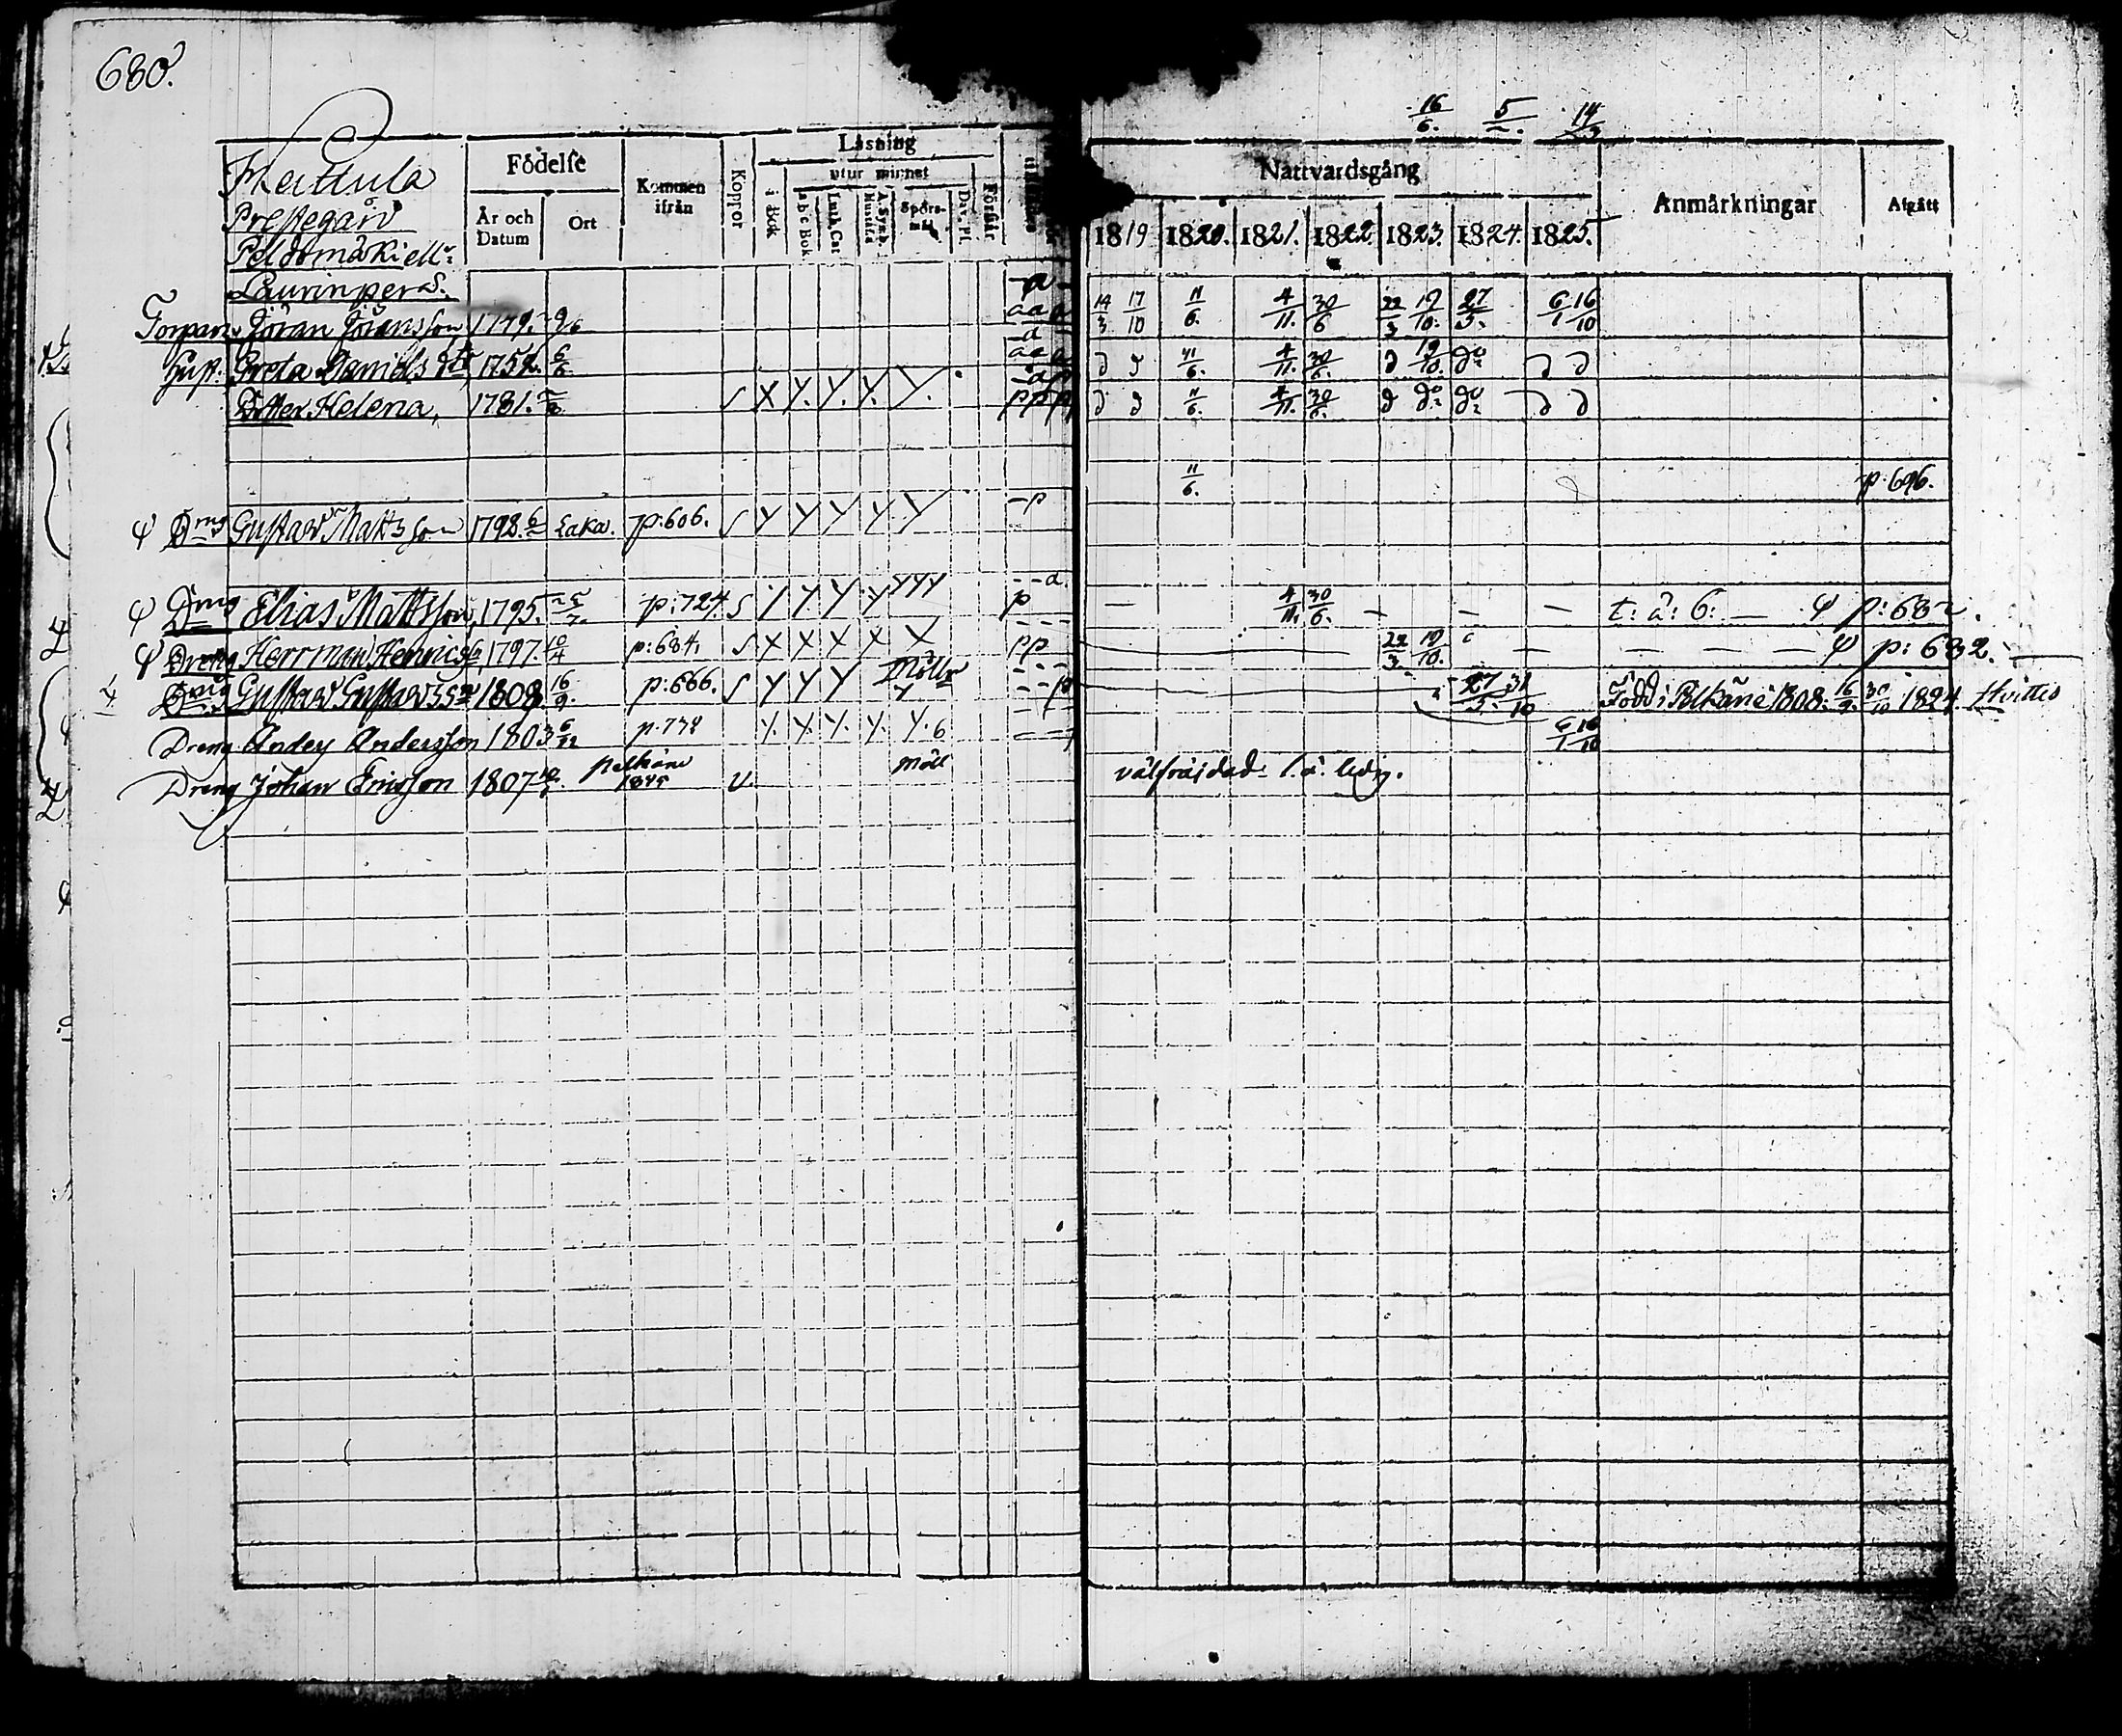 680.
16/6. 5/2. 14/3
Mattula
Prestegård
Peldomäki ell:
Laurinperd.
Födelse
År och Datum
Ort
Kommen ifrån
Koppor
Låsning
utur minnet
i Bok
a b c Bok
Luth. Cat
A. Symb. Hustafl
Spörs-mål
Dav. Ps.
Förstår
Nattvardsgång
1819 1820. 1821. 1822 1823. 1824. 1825.
Anmärkningar
Afgått
Torpare Jöran Jöransson 14/3 17/10 11/6. 4/11. 30/6 22/3 19/10. 27/5. 6/1 16/10
Hust: Greta Daniels dr 1752. 6/6 d d 11/6. 4/11. 30/6. d 19/10. do d d
Dotter Helena, 1781. S X Y. Y. X. Y. ppp d d 11/6. 4/11. 30/6. d do do d d
11/6. p. 696.
Dng Gustav Matts son 1798. 6/2 p: 606. S Y Y Y Y Y -p
Dng Elias Mattsson, 1795. p: 724. S Y Y Y Y YYY --a p — 4/11. 30/6. — — — t: å: 6: — p: 682.
Dreng Herrman Henricss 1797. 10/4 p: 684, S X X X X X pp 22/3. 19/10. — — — — p: 632.
Dreng Gustav Gustavsson 1808. 16/9. p: 666. S Y Y Y Mölle Y --p 27/5. 31/10 Född i Pelkäne 1808. 16/9. 30/10 1824. Hvittis
Dreng Andey Andersson 1803 6/12 p. 738 Y. Y. Y. Y. Y. 6 6/1 16/10
Dreng Johan Ericsson 1807 Pelkäne 1825 v. Möll välfräjdad l. ä. ledig.